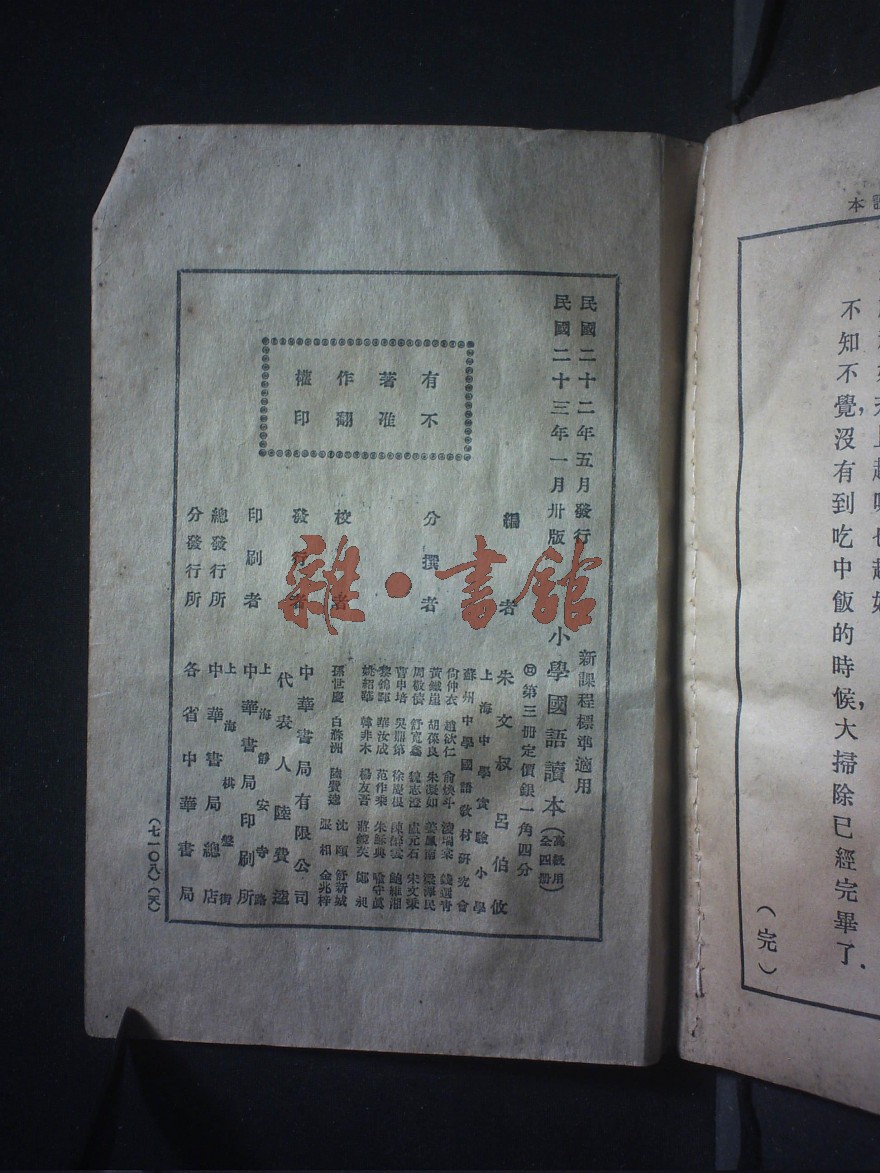 本
不知不覺,沒有到吃中飯的時候,大掃除已經完畢了.
(完)
民國二十二年五月發行
民國二十三年一月卅版
新課程標準適用
小學國語讀本
(高級用)
(全四册)
第三册定價銀一角四分
編者
朱文叔 呂伯攸
上海中學實驗小學
蘇州中學國語教材研究會
分撰者
尙仲衣 趙欲仁 俞煥斗
胡葆良 朱凝如
周敬儕 舒寬鑫 魏志澄 盧元石 朱文叔
曹申培 吳鼎第 徐慶長
黎錦暉 華汝成 范作乘 朱穌典 喩守眞
姚紹華 韓非木 楊友吾 蔣鏡芙 鄭昶
校者
孫世慶 白滌洲 陸費逵 沈頤 舒新城
張相 金兆梓
發行者
中華書局有限公司
代表人陸費逵
印刷者
上海靜安寺路
中華書局印刷所
總發行所
上海棋盤街
中華書局總店
分發行所
各省中華書局
有著作權
不准翻印
(七一〇八)(天)
雜·書館